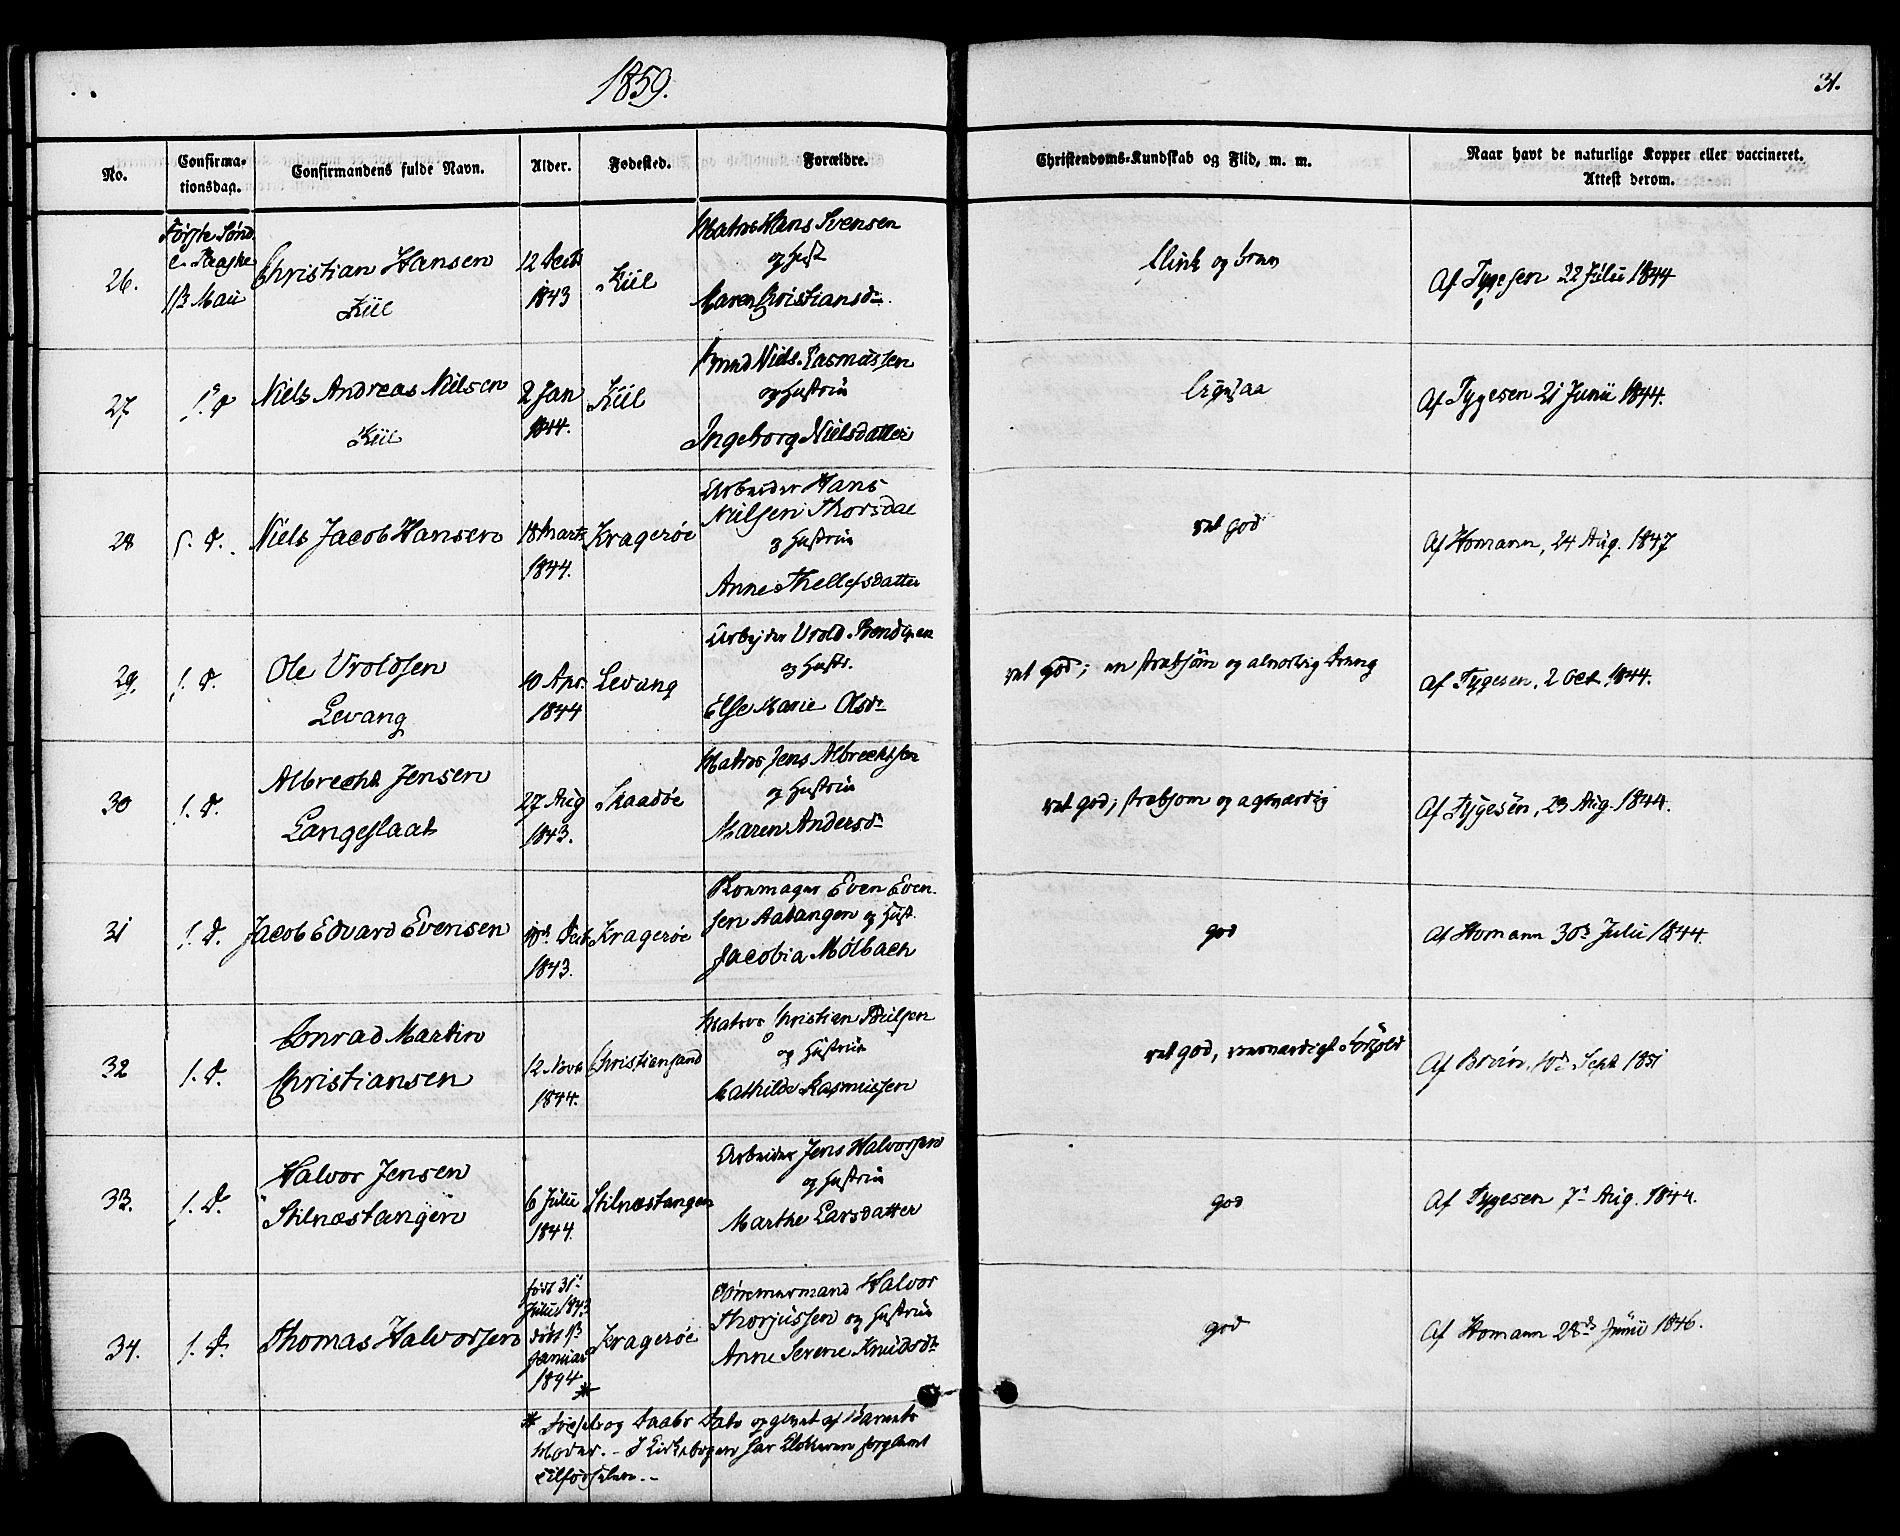 1859.
31.
No.
Confirma-
tionsdag.
Confirmandens fulde Navn.
Alder.
Fødested.
Forældre.
Christendoms-Kundskab og Flid, m. m.
Naar havt de naturlige Kopper eller vaccineret.
Attest derom.
26.
Første Sønd.
e. Paaske
1ste Maii
Christian Hansen
Kiil
12 Decb
1843
Kiil
Matros Hans Svensen
og Hust
Maren Christiansdr.
flink og brav
Af Tygesen 22 Julii 1844
27
s. D
Niels Andreas Nielsen
Kiil
2 Jan
1844.
Kiil
Niels Rasmussen
og Hustrue
Ingeborg Nielsdatter
ligesaa
Af Tygesen 21 Junii 1844.
28
s. D.
Niels Jacob Hansen
18 Marts
1844.
Kragerøe
Arbeider Hans
Nielsen Thorsdal
og Hustrue
Anne Thellefsdatter
ret god
Af Homann, 24 Aug. 1847
29.
s. D.
Ole Vroldsen
Levang
10 Apr.
1844
Levang
Arbejder Vrold Bendixen
og Hustr.
Else Marie Olsdr
ret god; en stræbsom og alvorlig Dreng
Af Tygesen, 2 Oct. 1844.
30
s. D.
Albrecht Jensen
Langeslaat
27 Aug
1843.
Skaadøe
Matros Jens Albrechtsen
og Hustrue
Maren Andersdr
ret god; stræbsom og agtværdig
Af Tygesen, 23 Aug. 1844.
31
s. D.
Jacob Edvard Evensen
Decb
1843.
Kragerøe
Even Even-
sen Aatangen og Hust.
Jacobia Mölbach
god
Af Homann 30te Julii 1844.
32
s. D.
Conrad Martin
Christiansen
12 Novb
1844.
Christiansand
Matros Christian Nielsen
og Hustrue
Mathilde Rasmussen
ret god, roesværdigt Forhold
Af 10de Sept 1851
33.
s. D.
Halvor Jensen
Stilnæstangen
6 Julii
1844.
Stilnæstangen
Arbeider Jens Halvorsen
og Hustrue
Marthe Larsdatter
god
Af Tygesen 7de Aug. 1844.
34.
s. D.
Thomas Halvorsen
født 31te
Julii 1843
døbt 1ste
Januar
1894
*
Kragerøe
Tømmermand Halvor
Thorjussen og Hustrue
Anne Serene Knudsdr
god
Af Homann 28de Junii 1846.
* Fødsels og Daabs Dato opgivet af Barnets
Moder. – I Kirkebogen har Klokkeren forglemt
Tilførselen. –